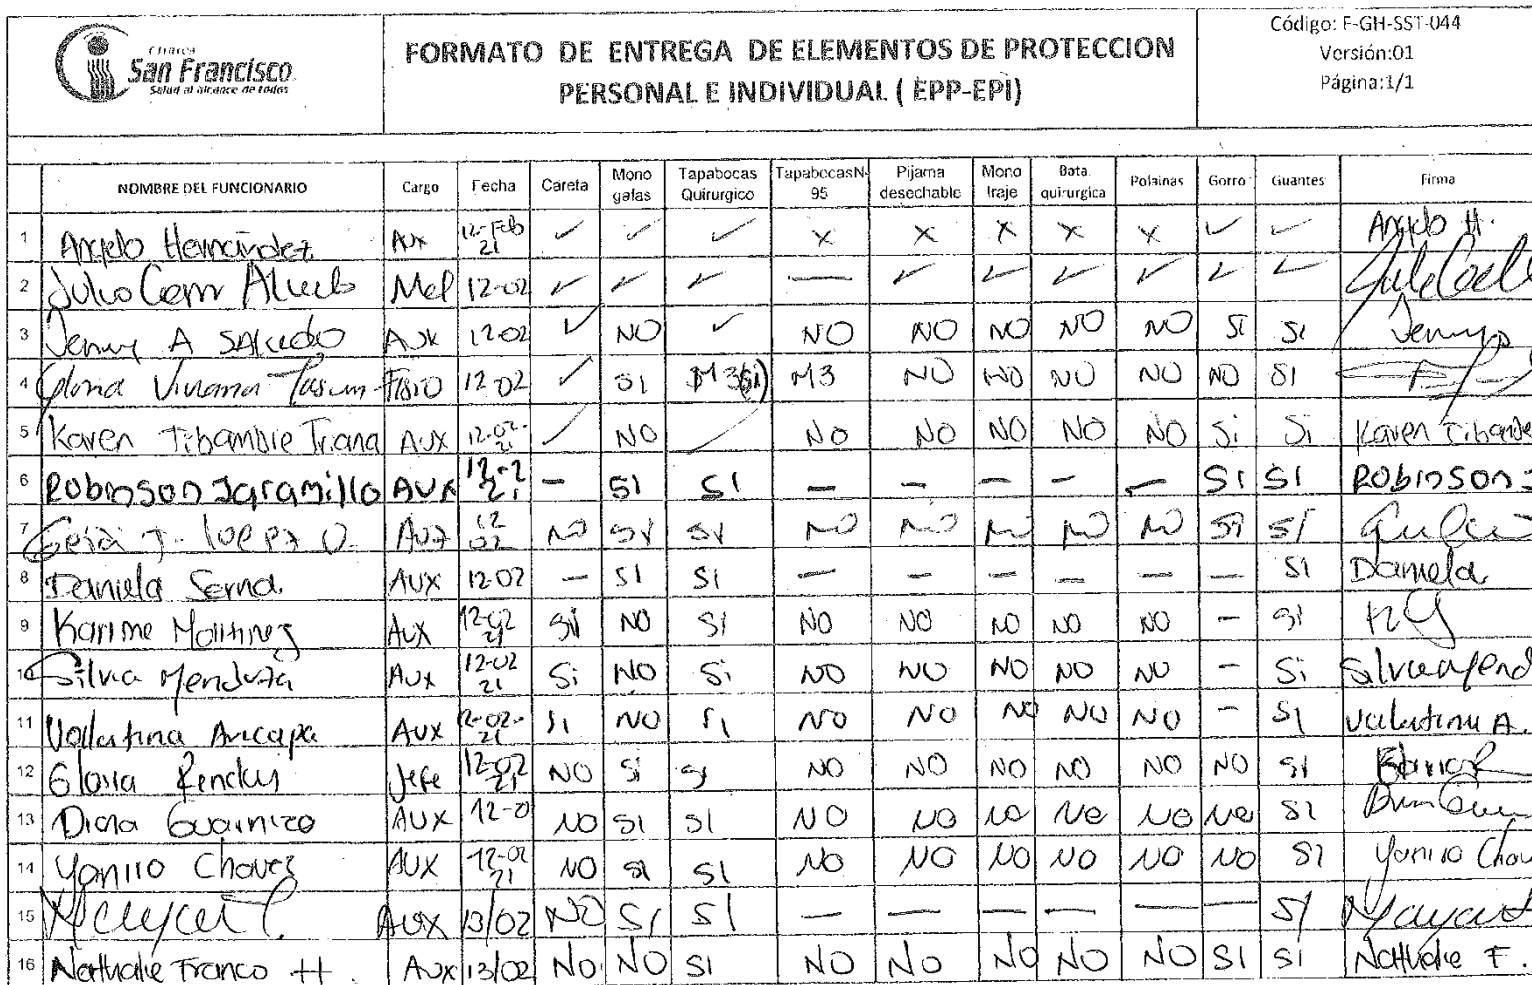 Clínica
San Francisco
Salud al alcance de todos
FORMATO DE ENTREGA DE ELEMENTOS DE PROTECCION
PERSONAL E INDIVIDUAL ( EPP-EPI)
Código: F-GH-SST-044
Versión:01
Página:1/1
NOMBRE DEL FUNCIONARIO Cargo Fecha Careta Mono gafas Tapabocas Quirurgico TapabocasN-95 Pijama desechable Mono traje Bata quirurgica Polainas Gorro Guantes Firma
1 Angelo Hernández Aux 12-Feb 21 ✓ ✓ ✓ X X X X X ✓ ✓ Angelo H.
2 Julio Cesar 12-02 ✓ ✓ ✓ — ✓ ✓ ✓ ✓ ✓ ✓
3 Jenny A Salcedo Aux 12-02 ✓ NO ✓ NO NO NO NO NO SI SI Jenny
4 Viviana Fisio 12-02 ✓ SI M3(SI) M3 NO NO NO NO NO SI
5 Karen Tibambre Triana Aux 12-02-21 ✓ NO ✓ NO NO NO NO NO Si Si Karen
6 Robinson Jaramillo AUX 12-2 21 – SI SI – – – – – SI SI Robinson J
7 J. Lopez O. Aux 12 02 NO SI SI NO NO NO NO NO SI SI
8 Daniela Serna. AUX 12-02 – SI SI – – – – – – SI Daniela
9 Karime Martinez Aux 12-02 21 SI NO SI NO NO NO NO NO – SI
10 Silvia Mendoza Aux 12-02 21 Si NO Si NO NO NO NO NO – Si Silvia Mend
11 Valentina Aricapa Aux 12-02-21 SI NO SI NO NO NO NO NO – SI Valentina A.
12 Gloria Jefe 12-02 21 NO SI SI NO NO NO NO NO NO SI
13 Diana Guarnizo AUX 12-0 NO SI SI NO NO NO NO NO NO SI
14 Yamiro Chaves AUX 12-02 21 NO SI SI NO NO NO NO NO NO SI Yamiro Chav
15 Aux 13/02 NO SI SI – – – – – – SI
16 Nathalie Franco H. Aux 13/02 NO NO SI NO NO NO NO NO SI SI Nathalie F.